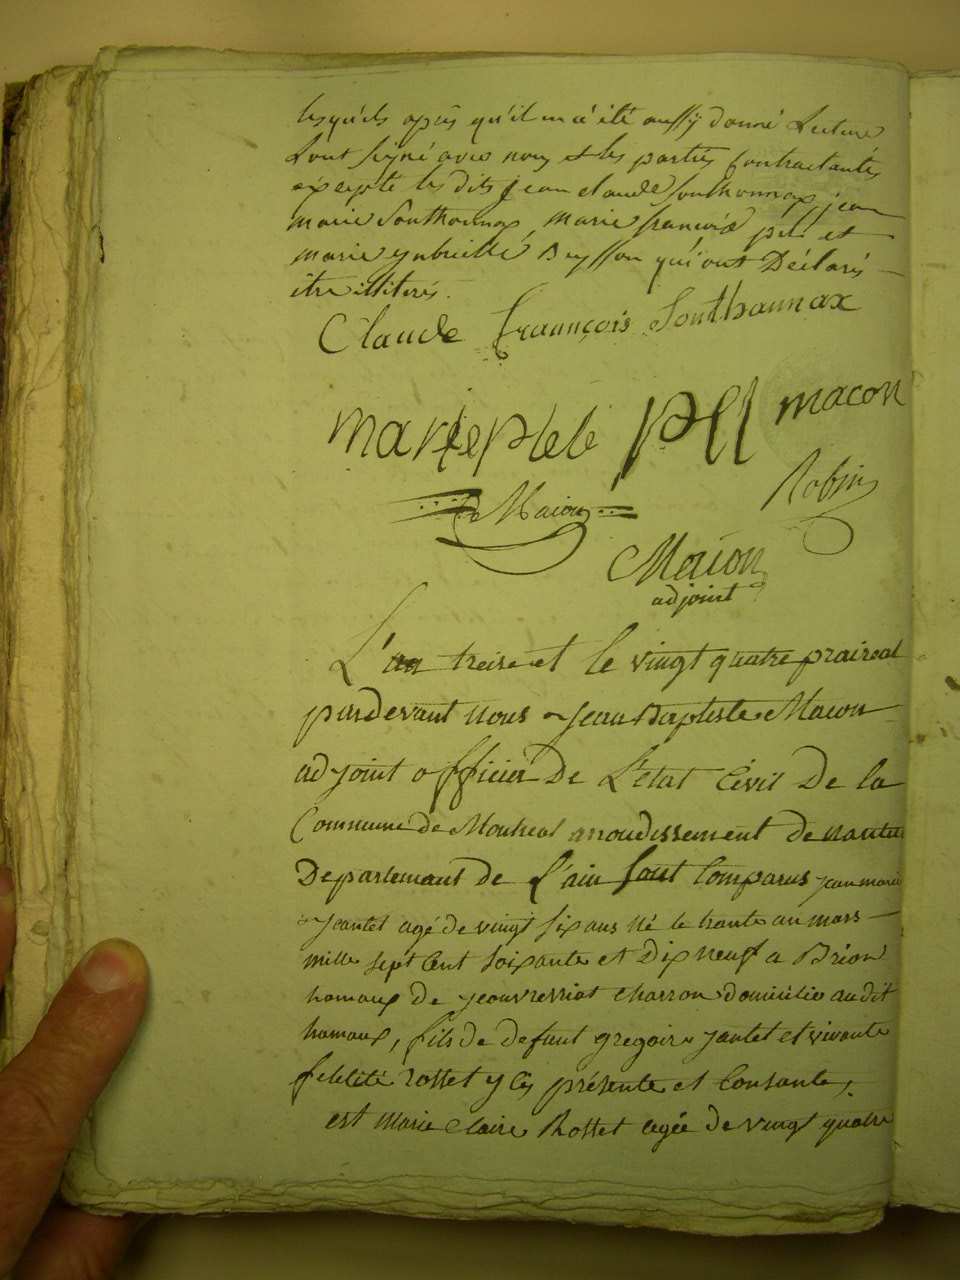 lesquels après qu'il en a été aussy donné Lecture
L'ont signé avec nous et les parties Contractantes
excepte les dits jean claude Sonthonnax, jean
marie Sonthonnax, marie francoise pell et
marie gabrielle Buffon qui ont Déclarés
être illiterés.
Claude françois Sonthannax
marie plelé pell macon
Robin
Macon
Macon
adjoint
L'an treise et le vingt quatre praireal
pardevant nous Jean Baptiste Macon
adjoint officier De L'etat Civil De la
Commune de Montreal arroudissement de nantua
Departement de L'ain Sont Comparus jean marie
Jeantet agé de vingt six ans né le trante un mars
mille sept Cent soixante et Dix neuf a Brion
hamaux de jeouvressiat charron domicilie au dit
hamaux, fils de defunt gregoire jantet et vivante
felicité rosset y Cy présente et Consante,
est marie Claire Rosset agée de vingt quatre